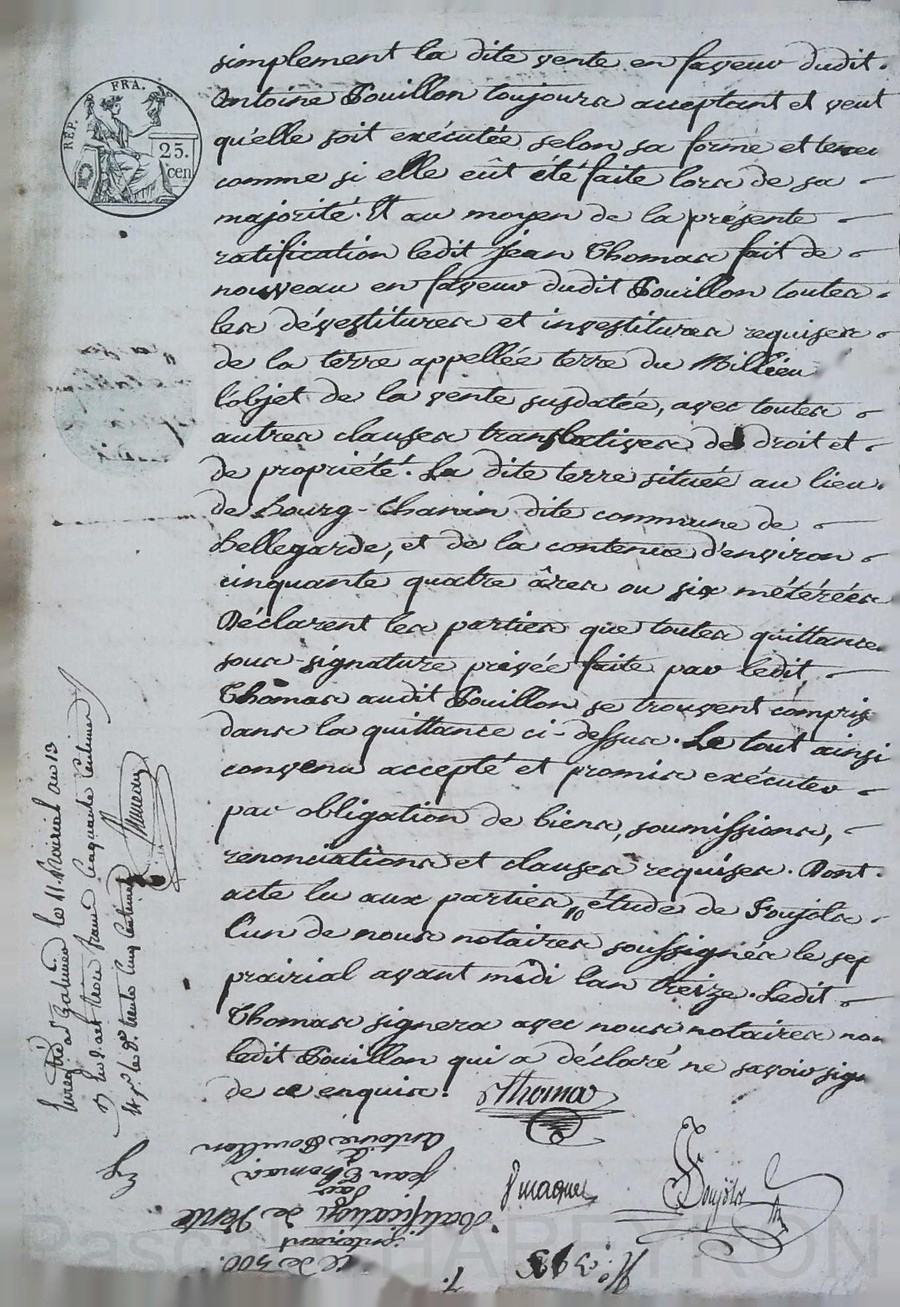 REP. FRA.
25.
cen
simplement la dite vente en faveur dudit
Antoine Pouillon toujours acceptant et veut
qu'elle soit exécutée selon sa forme et teneur
comme si elle eût été faite lors de sa
majorité. Et au moyen de la présente
ratification ledit Jean Thomas fait de
nouveau en faveur dudit Pouillon toutes
les dévestitures et investitures requises
de la terre appellée terre du Millieu
l'objet de la vente susdatée, avec toutes
autres clauses translatives de droit et
de propriété. La dite terre située au lieu
de Bourg-Chanin dite commune de
Bellegarde, et de la contenue d'environ
cinquante quatre âres ou six métérées
Déclarent les parties que toutes quittances
sous-signature privée faite par ledit
Thomas audit Pouillon se trouvent compris
dans la quittance ci-dessus. Le tout ainsi
convenu accepté et promis exécuter
par obligation de biens, soumissions,
renonciations et clauses requises. Dont
acte lu aux parties, étude de Poujols
l'un de nous notaires soussignés le sep
prairial avant midi l'an treize. Ledit
Thomas signera avec nous notaires non
ledit Pouillon qui a déclaré ne savoir sign
de ce enquis.
Thomas
Poujols
Enregistré à Galmier le 11 Prairial an 13
reçu trois francs cinquante centimes
trente cinq centimes
N°. 39
Ratification de Vente
par
Jean Thomas
à
Antoine Pouillon
de 500.
Pascal CHABEYRON